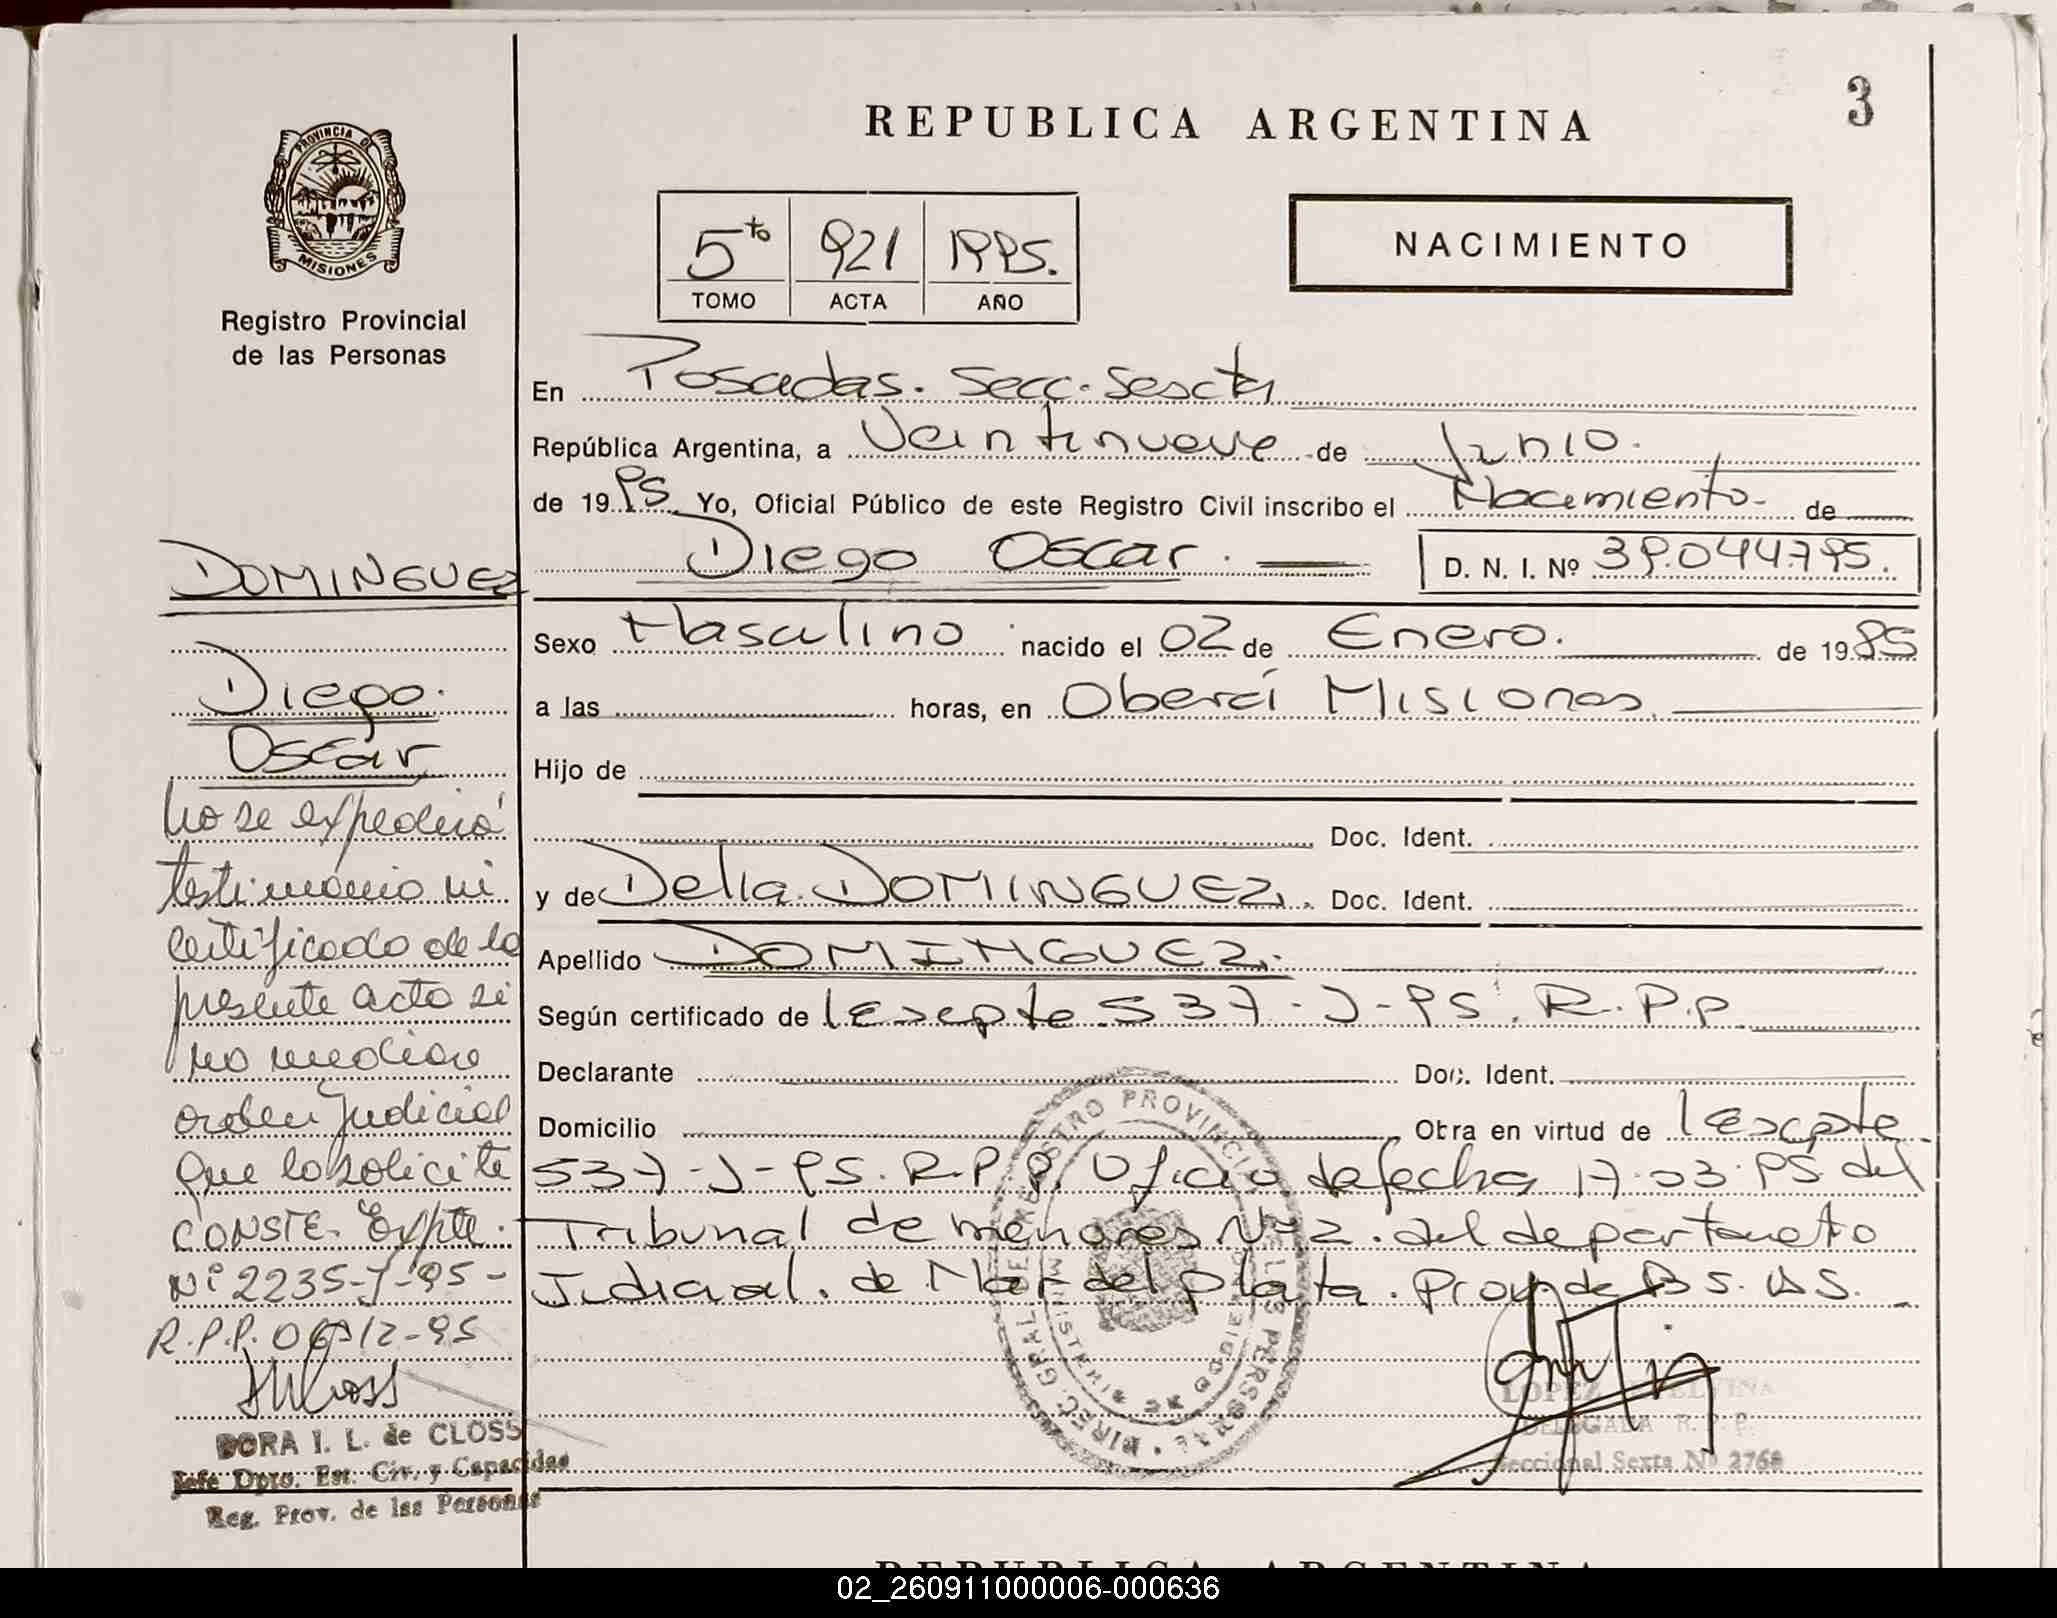 3
REPUBLICA ARGENTINA
PROVINCIA DE
MISIONES
Registro Provincial
de las Personas
5to 921 1995.
TOMO ACTA AÑO
NACIMIENTO
En Posadas. Secc. Sescta
República Argentina, a Veintinueve de Junio.
de 1995. Yo, Oficial Público de este Registro Civil inscribo el Nacimiento de
Diego Oscar. D. N. I. Nº 39.044.795.
Sexo Masculino nacido el 02 de Enero. de 1985
a las horas, en Oberá Misiones.
Hijo de
Doc. Ident.
y de Delia DOMINGUEZ. Doc. Ident.
Apellido DOMINGUEZ.
Según certificado de Expte 537-J-95. R.P.P.
Declarante Doc. Ident.
Domicilio Obra en virtud de Expte
537-J-95. R.P.P. Oficio de fecha 17.03.95 del
Tribunal de menores Nº 2. del departameto
Judicial. de Mar del plata. Prov. de BS. AS.
DOMINGUEZ
Diego.
Oscar
No se expedirá
testimonio ni
certificado de la
presente acta si
no mediare
orden judicial
que lo solicite
CONSTE. Expte.
Nº 2235-J-95-
R.P.P. 06-12-95
DORA I. L. de CLOSS
Jefe Dpto. Est. Civ. y Capacidad
Reg. Prov. de las Personas
DIREC. GRAL. DEL REGISTRO PROVINCIAL DE LAS PERSONAS
MINISTERIO DE GOBIERNO
LOPEZ
DELEGADA R. P. P.
Seccional Sexta Nº 2768
REPUBLICA ARGENTINA
02_260911000006-000636